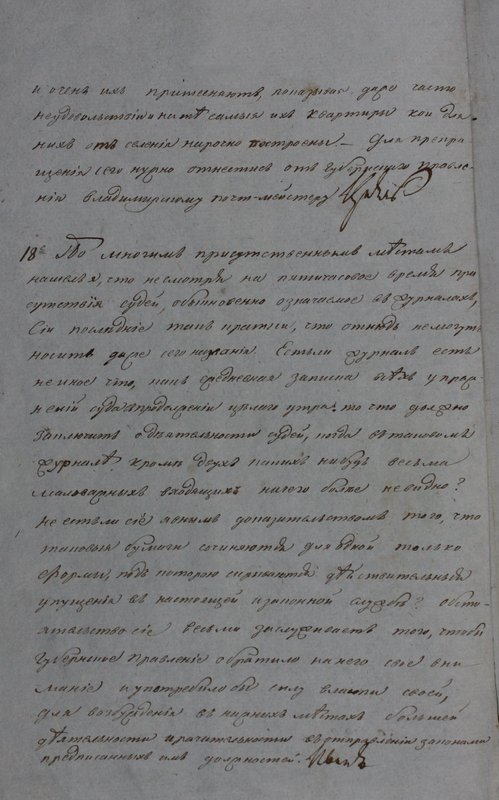 и очень ихъ притесняютъ, показывая даже часто
неудовольствіи на тѣ самыя ихъ квартиры кои для
нихъ отъ селенія нарочно построены — Для прекра
щенія сего нужно отнестись отъ Губернскаго Правле
нія Владимирскому почт-мейстеру
18е Во многихъ присутственныхъ мѣстахъ
нашелъ я, что несмотря на пятичасовое время при
сутствія судей, обыкновенно означаемое въ журналахъ,
Сіи последніе такъ кратки, что отнюдь не могутъ
носить даже сего названія Естьли журналъ есть
не иное что, какъ средневная записка всѣхъ упраж
неній суда въ продолженіи цѣлаго утра, то что должно
заключить о дѣятельности судей, когда въ таковомъ
журналѣ кромѣ двухъ какихъ нибудь весьма
маловажныхъ входящихъ ничего болѣе не видно?
не естьли сіе явнымъ доказательствомъ того, что
таковыя бумаги сочиняются для одной только
формы, подъ которою скрываются дѣйствительныя
упущенія въ настоящей и законной службѣ? обсто
ятельство сіе весьма заслуживаетъ того, чтобы
Губернское Правленіе обратило на него свое вни
маніе и употребило бы силу власти своей,
для возбужденія въ нижнихъ мѣстахъ большей
дѣятельности и рачительности въ отправленіи законами
предписанныхъ имъ должностей.